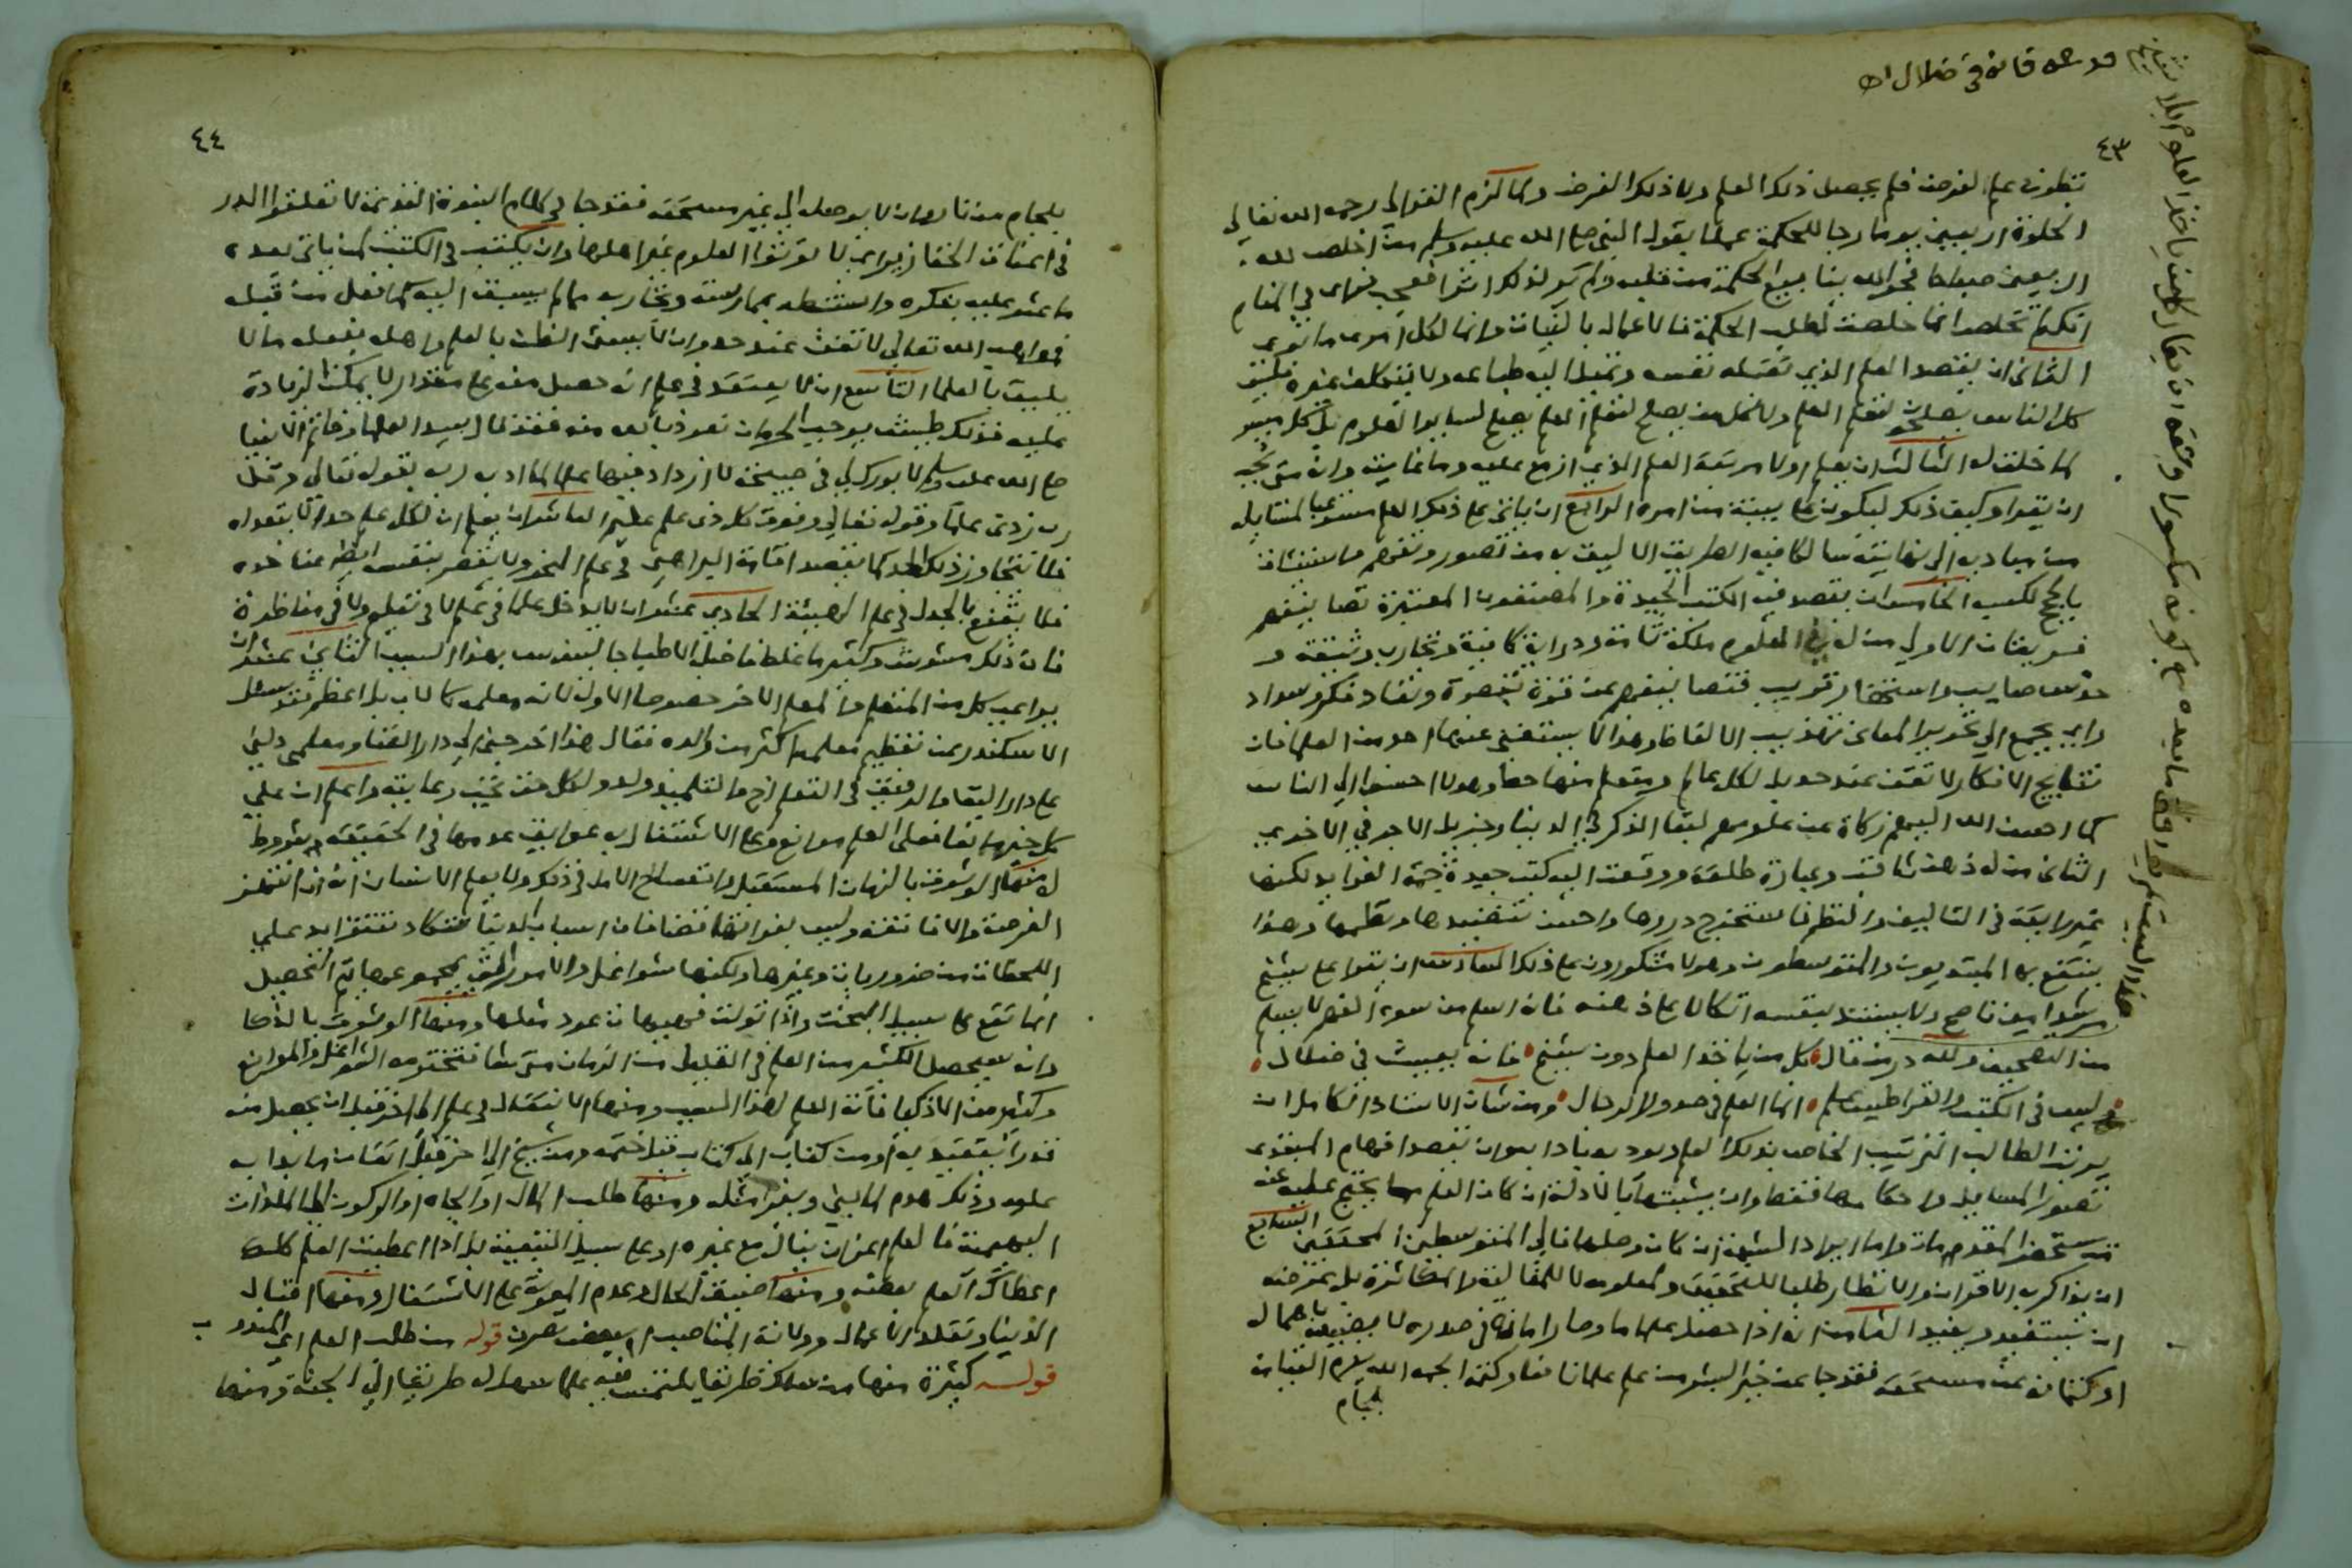 ٤٣
تطورت علي الغرض فلم يحصل ذلك العلم ولا ذلك الغرض ولما لزم الغزالي رحمه الله تعالي
الخلوة اربعين يوما رجا للحكمة عملا بقول النبي صلي الله عليه وسلم من اخلص لله
اربعين صباحا فجر الله ينابيع الحكمة من قلبه ولم ير لذلك اثرا فعجب فراي في المنام
انك لم تخلص انما خلصت لطلب الحكمة فالاعمال بالنيات وانما لكل امرء ما نوي
الثاني ان يقصد العلم الذي تقبله نفسه وتميل اليه طباعه ولا يتكلف غيره فليس
كل الناس يصلحون لتعلم العلم ولا كل من يصلح لتعلم العلم يصلح لساير العلوم بل كل ميسر
لما خلق له الثالث ان يعلم اولا مرتبة العلم الذي ازمع عليه وما غايته
ان يقرا وكيف ذلك ليكون علي بينة من امره الرابع ان ياتي علي ذلك العلم مستوعبا لمسايله
من مباديه الي نهايته سالكا فيه الطريق الاليق به من تصور وتفهم واستثبات
بالحجج الخامس ان يقصد فيه الكتب الجيدة والمصنفون المعتبرة تصانيفهم
فريقان الاول من له في العلوم ملكة تامة ودراية كافية وتجارب وثيقة و
حدس صايب واستحضار قريب فتصانيفهم عن قوة تبصرة ونفاد فكر وسداد
راي يجمع الي تحرير المعاني تهذيب الالفاظ وهذا لا يستغني عنها احد من العلما فان
نتايج الافكار لا تقف عند حد بل لكل عالم ومتعلم منها حظ وهولا احسنوا الي الناس
كما احسن الله اليهم زكاة عن علومهم لبقا الذكر في الدنيا وجزيل الاجر في الاخري
الثاني من له ذهن ثاقب وعبارة طلقة ووقعت اليه كتب جيدة جمة الفوايد لكنها
غير رايقة في التاليف والنظم فاستخرج دررها واحسن تنضيدها ونظمها وهذا
ينتفع به المبتديون والمتوسطون وهولا مشكورون علي ذلك السادس ان يقرا علي شيخ
مرشد امين ناصح ولا يستبد بنفسه اتكالا علي ذهنه فان العلم من سوء الفهم لا يسلم
من التصحيف ولله در من قال كل من ياخذ العلم دون شيخ فانه يعبث في ضلال
وليس في الكتب والقراطيس علم انما العلم في صدور الرجال ومن شان الاستاذ الكامل ان
يرتب الطالب الترتيب الخاص بذلك العلم ويود به بادابه وان يقصد افهام المبتدي
تصور المسايل واحكامها فقط وان يثبتها بالادلة ان كان العلم مما يحتج عليه عند
من يستحضر المقدمات واما ايراد الشبهة ان كان وحلها فالي المتوسطين المحققين السابع
ان يذاكر به الاقران والانظار طلبا للتحقيق والمعلومة لا للمغالبة والمكابرة بل غرضه
ان يستفيد ويفيد الثامن انه اذا حصل علم ما وصار امانة في صدره لا يضيعه باهمال
او كتمانه عن مستحقه فقد جا عن خير البشر من علم علما نافعا وكتمه الجمه الله يوم القيامة
بلجام
٤٤
بلجام من نار وان لا يوصله الي غير مستحقه فقد جا في كلام النبوة القديمة لا تعلقوا الدر
في اعناق الخنازير اي لا تؤتوا العلوم غير اهلها وان يكتب في الكتب لمن ياتي بعده
ما عثر عليه بفكره واستنبطه بممارسته وتجاربه مما لم يسبق اليه كما فعل من قبله
فمواهب الله تعالي لا تقف عند حد وان لا يسيء الظن بالعلم واهله بفعله ما لا
يليق بالعلما التاسع ان لا يعتقد في علم انه حصل منه علي مقدار لا يمكن الزيادة
عليه فذلك طيش يوجب الحرمان نعوذ بالله منه فقد قال سيد العلما وخاتم الانبيا
صلي الله عليه وسلم لا بورك لي في صبيحة لا ازداد فيها علما كما ادبه ربه بقوله تعالي وقل
رب زدني علما وقوله تعالي وفوق كل ذي علم عليم العاشر ان يعلم ان لكل علم حدا لا يتعداه
فلا يتجاوز ذلك الحد كما يقصد اقامة البراهين في علم النحو ولا يقصر بنفسه ايضا عن حده
فلا يقنع بالجدل في علم الهيئة الحادي عشر ان لا يدخل علما في علم لا في تعليم ولا في مناظرة
فان ذلك مشوش وكثيرا ما غلط فاضل الاطبا جالينوس بهذا السبب الثاني عشر ان
يراعي كل من المتعلم والمعلم الاخر خصوصا الاول لانه معلمه كالاب بل اعظم فقد سئل
الاسكندر عن تعظيم معلمه اكثر من والده فقال هذا اخرجني الي دار الفنا ومعلمي دلني
علي دار البقا والرفيق في التعلم اخ والتلميذ ولد ولكل حق تجب رعايته واعلم ان علي
كل خير مانعا فعلي العلم موانع وعلي الاشتغال به عوايق
منها الوثوق بالزمان المستقبل وانفساح الامل في ذلك ولا يعلم الانسان انه ان انتهز
الفرصة والا فاتته وليس لفواتها قضا فان اسباب الدنيا تكاد تتزايد علي
اللحظات من ضروريات وغيرها وكلها شواغل والامور التي بمجموعها يتم التحصيل
انما تقع علي سبيل البخت واذا تولت فهيهات عود مثلها ومنها الوثوق بالذكا
وانه سيحصل الكثير من العلم في القليل من الزمان متي شا فتخترمه الشواغل والموانع
وكثير من الاذكيا فاته العلم لهذا السبب ومنها الانتقال من علم الي اخر قبل ان يحصل منه
قدرا يعتد به او من كتاب الي كتاب قبل ختمه ومن شيخ الي اخر قبل اتقان ما بدا به
عليه وذلك هدم لما بني ويعز مثله ومنها طلب المال او الجاه او الركون الي اللذات
البهيمية فالعلم اعز ان ينال مع غيره او علي سبيل التبعية بل اذا اعطيت العلم كلك
اعطاك العلم بعضه ومنها ضيق الحال وعدم المعونة علي الاشتغال ومنها اقبال
الدنيا وتقلد الاعمال وولاية المناصب قوله من طلب العلم
قوله كثيرة منها من سلك طريقا يلتمس فيه علما سهل الله له طريقا الي الجنة ومنها